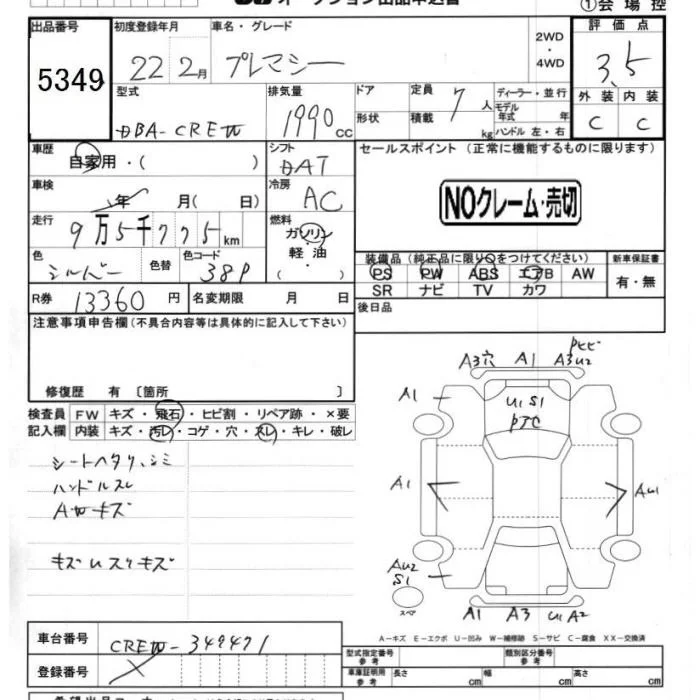 オークション出品申込書
①会場控
出品番号 初度登録年月 車名・グレード 2WD・4WD 評価点
5349 22年 2月 プレマシー 3.5
型式 排気量 ドア 定員 7人 ディーラー・並行 外装 内装
DBA-CREW 1990cc 形状 積載 kg モデル年式 年 C C
ハンドル 左・右
車歴 自家用・( ) シフト DAT セールスポイント (正常に機能するものに限ります)
車検 年 月( 日) 冷房 AC NOクレーム・売切
走行 9万5千775km 燃料 ガソリン・軽油・( )
色 シルバー 色替 色コード 38P
装備品(純正品に限り○をつけてください) 新車保証書
PS PW ABS エアB AW 有・無
SR ナビ TV カワ
R券 13360円 名変期限 月 日 後日品
注意事項申告欄(不具合内容等は具体的に記入して下さい)
修復歴 有 〔箇所 〕
検査員 FW キズ・飛石・ヒビ割・リペア跡・×要
記入欄 内装 キズ・汚レ・コゲ・穴・スレ・キレ・破レ
シートヘタリ、シミ
ハンドルスレ
AWキズ
A3穴 A1 A3U2
A1 U1 S1
PTC
A1
AU1
AU2
S1
スペア
A1 A3 U1 A2
A-キズ E-エクボ U-凹み W-補修跡 S-サビ C-腐食 XX-交換済
車台番号 CREW-349471
登録番号
型式指定番号 参考 類別区分番号 参考
車庫証明用 参考 長さ cm 幅 cm 高さ cm